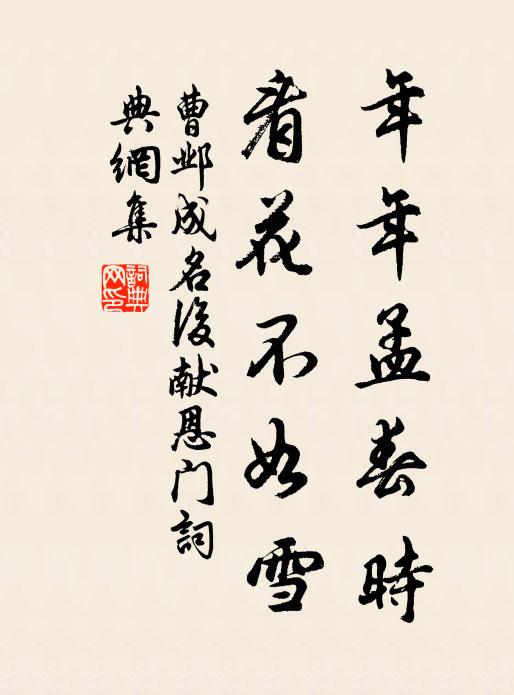 年年孟春時
看花不如雪
曹邺成名後献恩门詞
典網集
詞典
网印